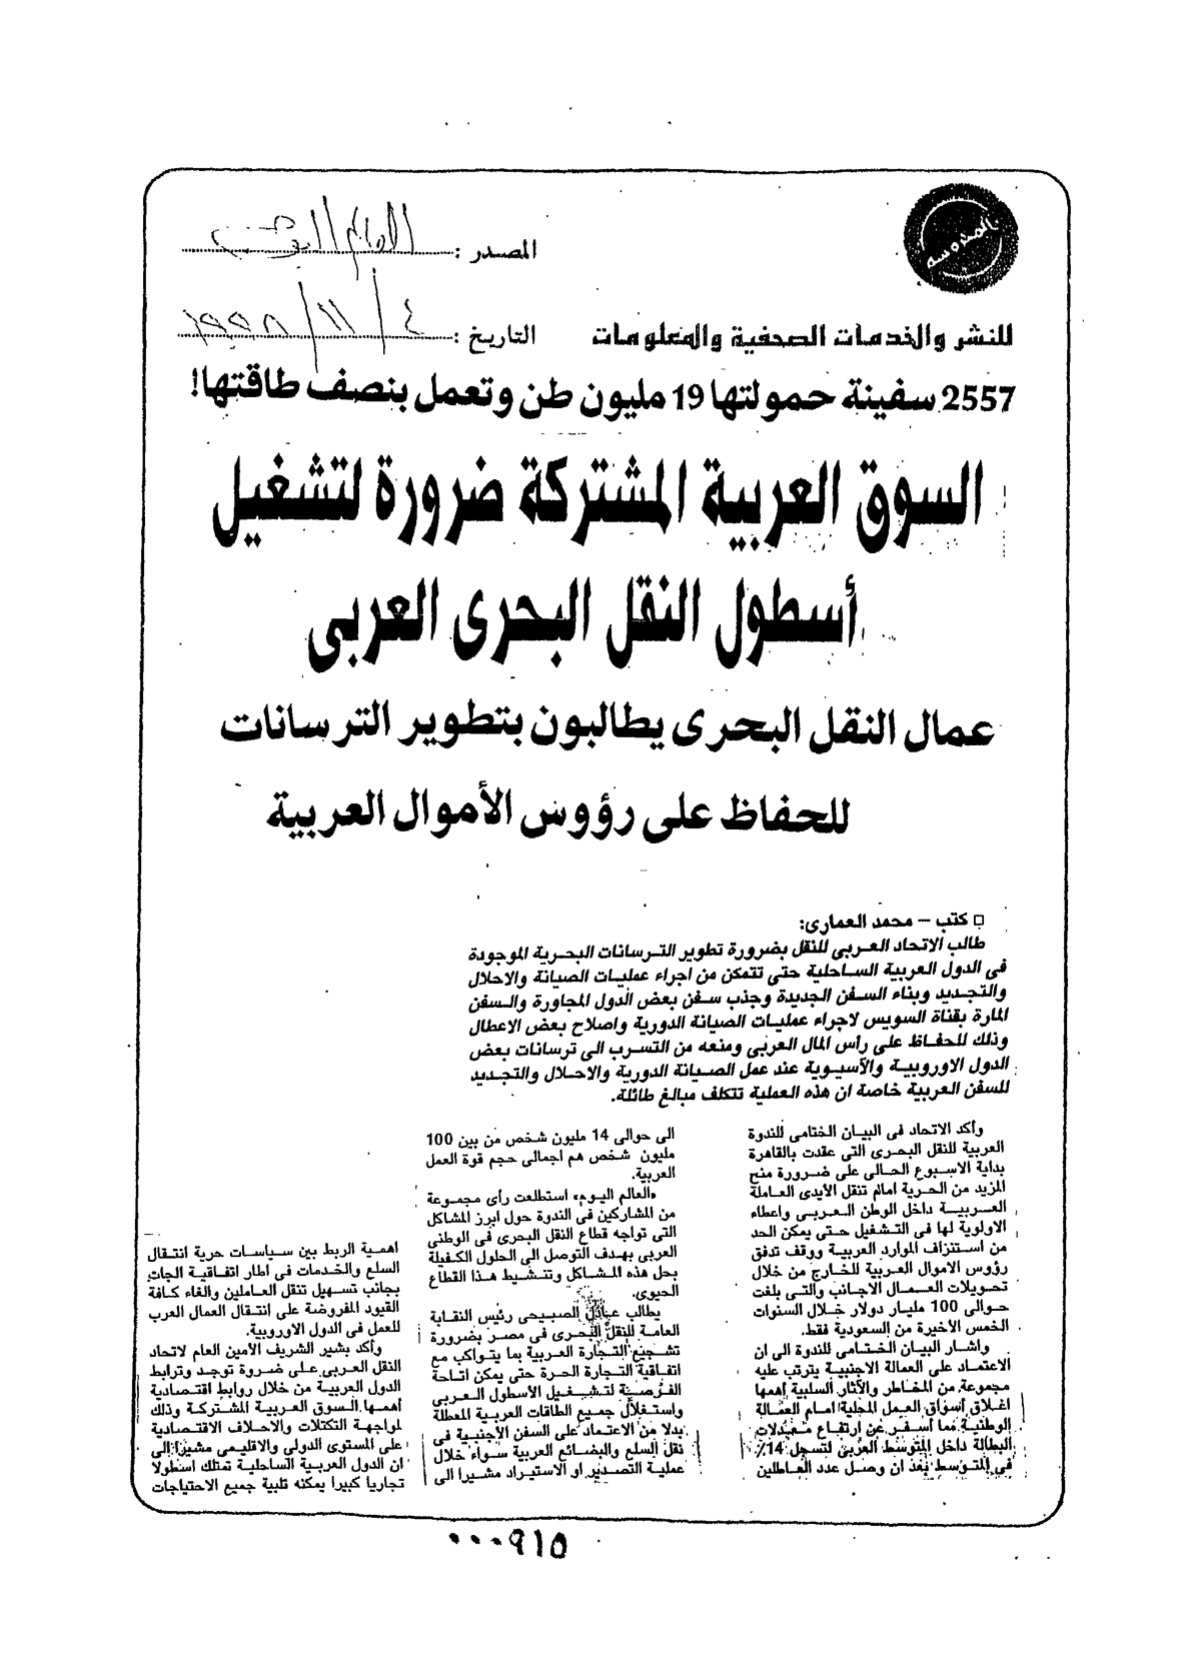 المحروسة
المصدر : العالم اليوم
للنشر والخدمات الصحفية والمعلومات
التاريخ : ٤ / ١١ / ١٩٩٨
2557 سفينة حمولتها 19 مليون طن وتعمل بنصف طاقتها!
السوق العربية المشتركة ضرورة لتشغيل
أسطول النقل البحرى العربى
عمال النقل البحرى يطالبون بتطوير الترسانات
للحفاظ على رؤوس الأموال العربية
□ كتب – محمد العمارى:
طالب الاتحاد العربى للنقل بضرورة تطوير الترسانات البحرية الموجودة
فى الدول العربية الساحلية حتى تتمكن من اجراء عمليات الصيانة والاحلال
والتجديد وبناء السفن الجديدة وجذب سفن بعض الدول المجاورة والسفن
المارة بقناة السويس لاجراء عمليات الصيانة الدورية واصلاح بعض الاعطال
وذلك للحفاظ على رأس المال العربى ومنعه من التسرب الى ترسانات بعض
الدول الاوروبية والآسيوية عند عمل الصيانة الدورية والاحلال والتجديد
للسفن العربية خاصة ان هذه العملية تتكلف مبالغ طائلة.
وأكد الاتحاد فى البيان الختامى للندوة
العربية للنقل البحرى التى عقدت بالقاهرة
بداية الاسبوع الحالى على ضرورة منح
المزيد من الحرية امام تنقل الأيدى العاملة
العربية داخل الوطن العربى واعطاء
الاولوية لها فى التشغيل حتى يمكن الحد
من استنزاف الموارد العربية ووقف تدفق
رؤوس الاموال العربية للخارج من خلال
تحويلات العمال الاجانب والتى بلغت
حوالى 100 مليار دولار خلال السنوات
الخمس الاخيرة من السعودية فقط.
واشار البيان الختامى للندوة الى ان
الاعتماد على العمالة الاجنبية يترتب عليه
مجموعة من المخاطر والآثار السلبية أهمها
اغلاق أسواق العمل المحلية امام العمالة
الوطنية مما أسفر عن ارتفاع معدلات
البطالة داخل المتوسط العربى لتسجل 14٪
فى المتوسط بعد ان وصل عدد العاطلين
الى حوالى 14 مليون شخص من بين 100
مليون شخص هم اجمالى حجم قوة العمل
العربية.
«العالم اليوم» استطلعت رأى مجموعة
من المشاركين فى الندوة حول ابرز المشاكل
التى تواجه قطاع النقل البحرى فى الوطنى
العربى بهدف التوصل الى الحلول الكفيلة
بحل هذه المشاكل وتنشيط هذا القطاع
الحيوى.
يطالب عادل الصبيحى رئيس النقابة
العامة للنقل البحرى فى مصر بضرورة
تشجيع التجارة العربية بما يتواكب مع
اتفاقية التجارة الحرة حتى يمكن اتاحة
الفرصة لتشغيل الأسطول العربى
واستغلال جميع الطاقات العربية المعطلة
بدلا من الاعتماد على السفن الأجنبية فى
نقل السلع والبضائع العربية سواء خلال
عملية التصدير او الاستيراد مشيرا الى
اهمية الربط بين سياسات حرية انتقال
السلع والخدمات فى اطار اتفاقية الجات
بجانب تسهيل تنقل العاملين والغاء كافة
القيود المفروضة على انتقال العمال العرب
للعمل فى الدول الاوروبية.
وأكد بشير الشريف الأمين العام لاتحاد
النقل العربى على ضروة توحد وترابط
الدول العربية من خلال روابط اقتصادية
أهمها السوق العربية المشتركة وذلك
لمواجهة التكتلات والاحلاف الاقتصادية
على المستوى الدولى والاقليمى مشيرا الى
ان الدول العربية الساحلية تمتلك اسطولا
تجاريا كبيرا يمكنه تلبية جميع الاحتياجات
٠٠٠٩١٥